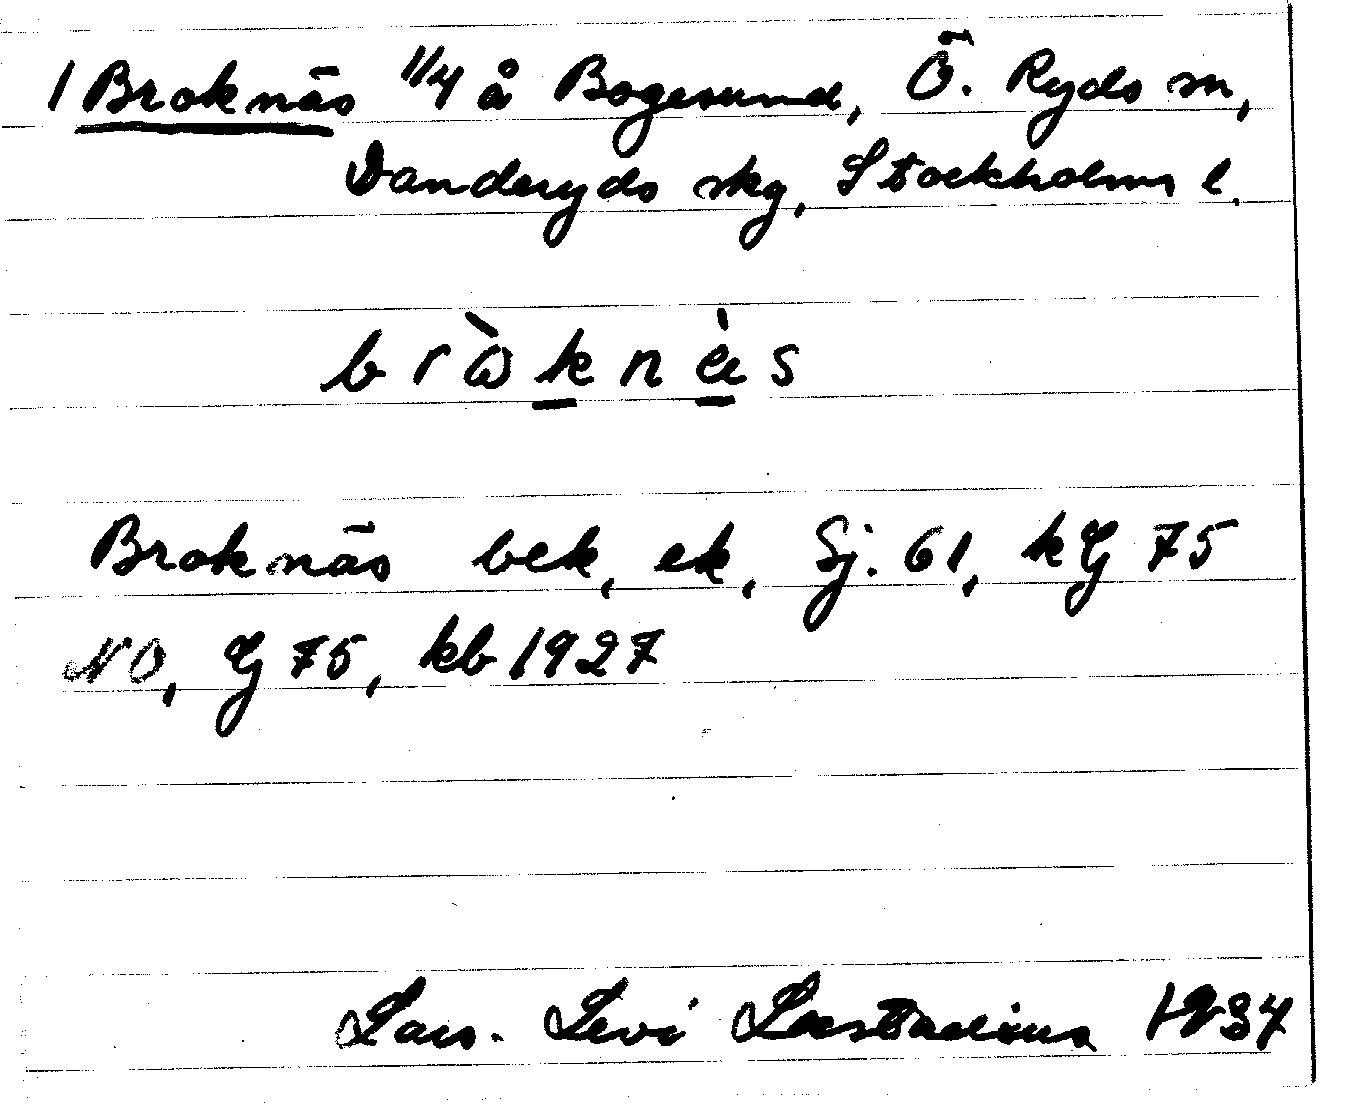 1 Broknäs 1/4 å Bogesund, Ö. Ryds sn,
Danderyds skg, Stockholms l.
bròknæ̀s
Broknäs bek, ek, Sj. 61, kG 75
NO, G 75, kb 1927
Lars. Levi Læstadius 1934